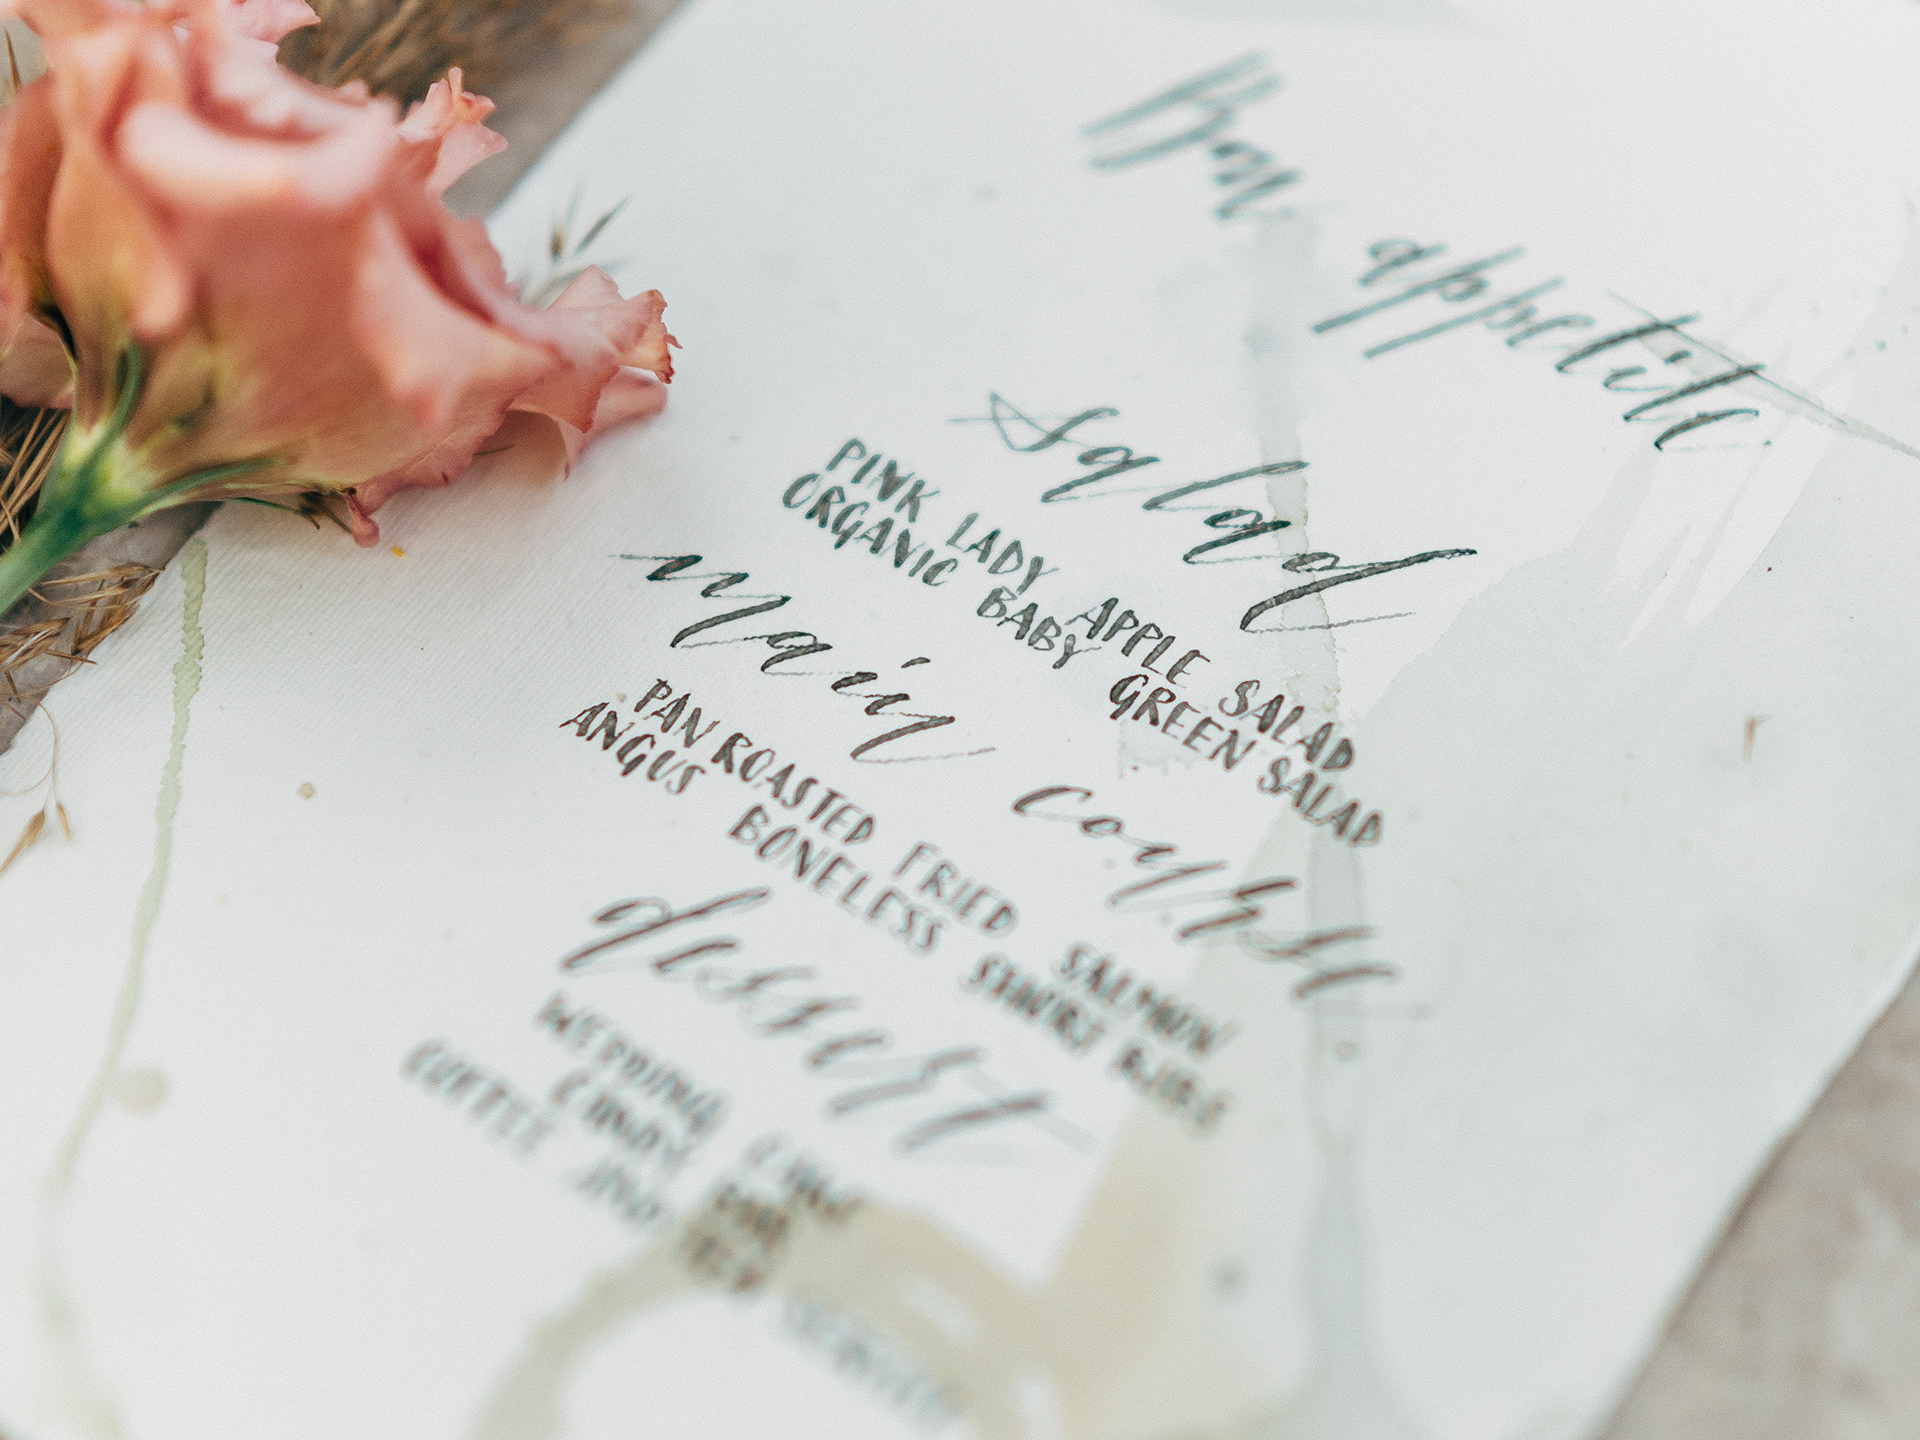 Bon appetite
Salad
PINK LADY APPLE SALAD
ORGANIC BABY GREEN SALAD
Main course
PAN ROASTED FRIED SALMON
ANGUS BONELESS SHORT RIBS
dessert
WEDDING CAKE
CANDY BAR
COFFEE AND TEA SERVICE